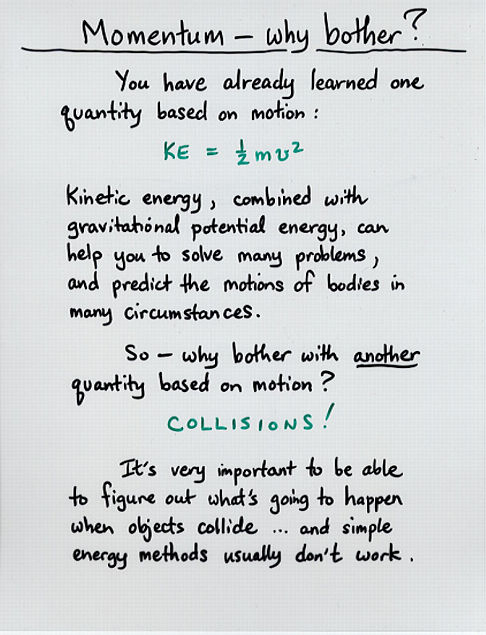 Momentum – why bother?
You have already learned one
quantity based on motion :
KE = ½mv²
Kinetic energy, combined with
gravitational potential energy, can
help you to solve many problems,
and predict the motions of bodies in
many circumstances.
So – why bother with another
quantity based on motion?
COLLISIONS!
It's very important to be able
to figure out what's going to happen
when objects collide ... and simple
energy methods usually don't work.